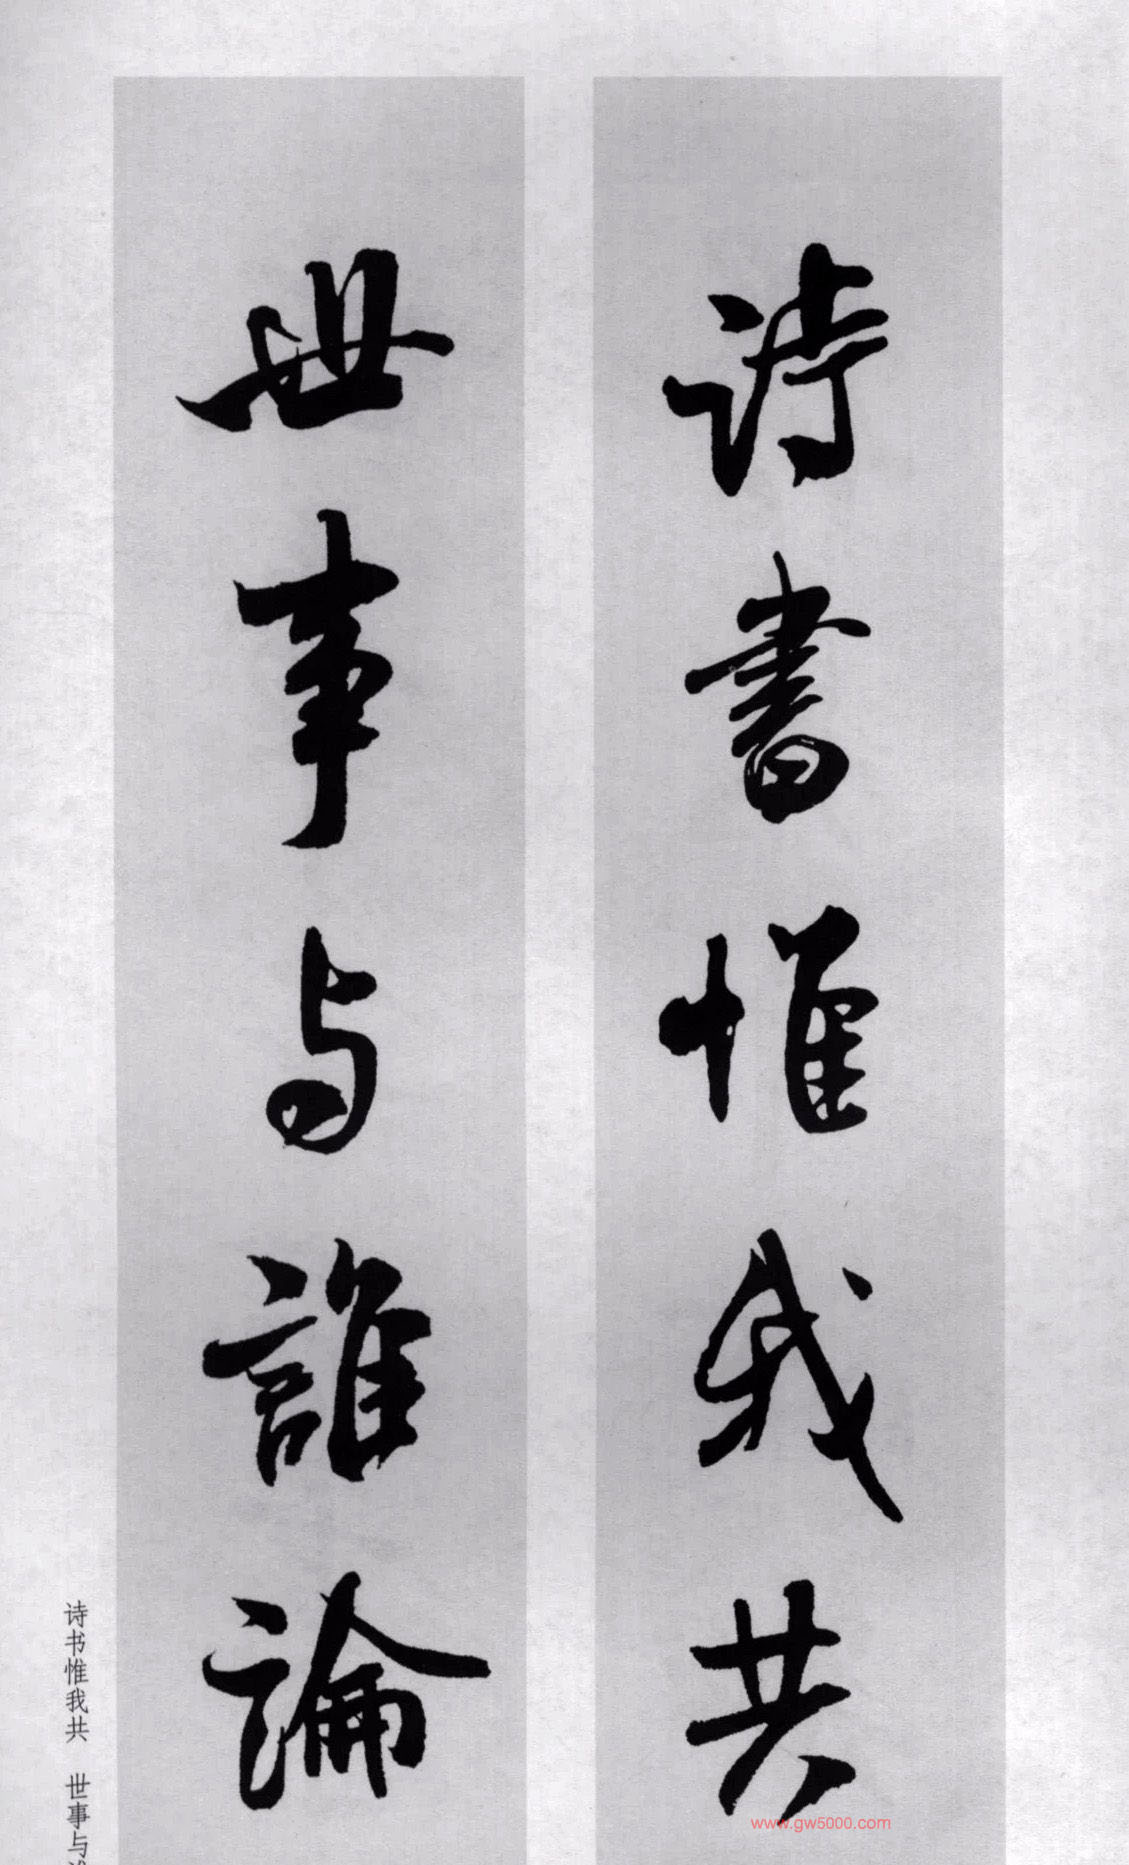 詩書惟我共
世事与誰論
诗书惟我共 世事与
www.gw5000.com